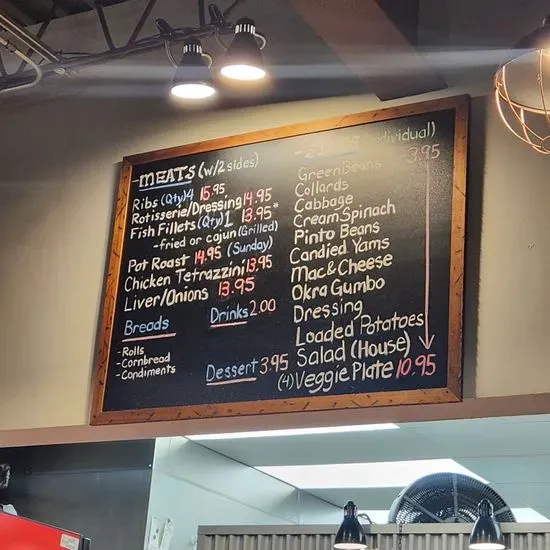 -MEATS (w/2 sides)
Ribs (Qty) 4 15.95
Rotisserie/Dressing 14.95
Fish Fillets (Qty) 1 13.95*
-fried or cajun (Grilled)
Pot Roast 14.95 (Sunday)
Chicken Tetrazzini 13.95
Liver/Onions 13.95
Breads
-Rolls
-Cornbread
-Condiments
Drinks 2.00
Dessert 3.95
(individual)
Green Beans 3.95
Collards
Cabbage
Cream Spinach
Pinto Beans
Candied Yams
Mac & Cheese
Okra Gumbo
Dressing
Loaded Potatoes
Salad (House)
(4) Veggie Plate 10.95